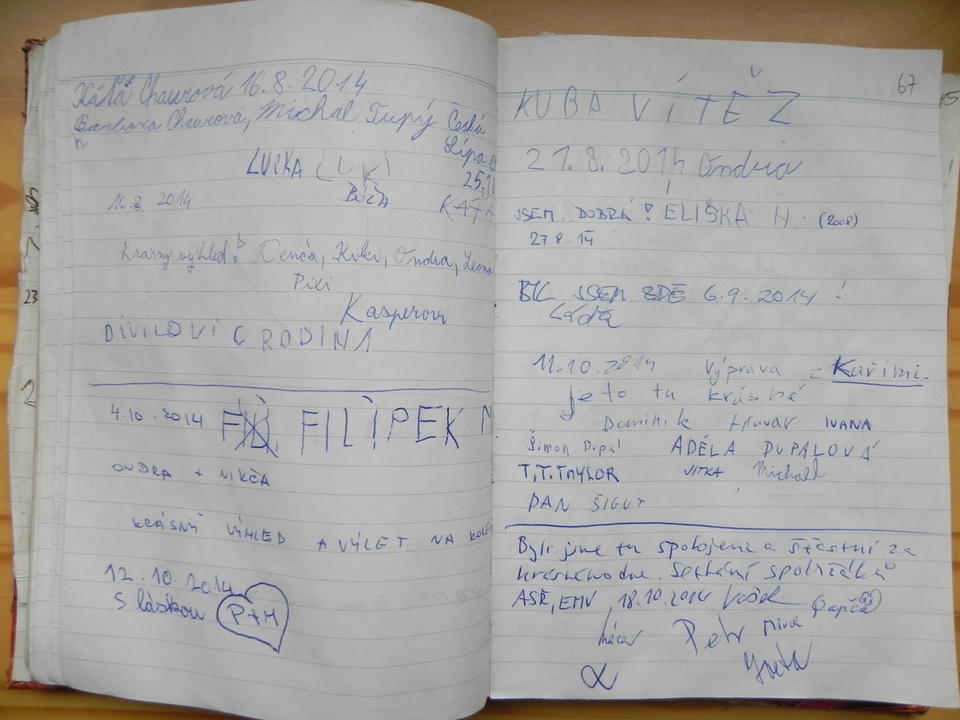 Káťa Chaurová 16.8.2014
Barbora Chaurová, Michal Tupý Česká
Lípa
LUCKA LUKI
25.
16.8 2014
BÓĎA
KÁŤA
Krásný výhled! Denča, Kiki, Ondra, Leona
Piki
Kasperovi
DIVILOVI RODINA
4.10.2014 FILIPEK
ONDRA + NIKČA
KRÁSNÝ VÝHLED A VÝLET NA
12.10.2014
S láskou P+M
67
KUBA VÍTĚZ
21.8.2014 Ondria
JSEM DOBRÁ! ELIŠKA H. (2008)
27 8. 14
BYL JSEM ZDE 6.9.2014!
Láďa
11.10.2014 Výprava z Kuřimi.
je to tu krásné
Dominik IVANA
Šimon ADÉLA DUPALOVÁ
T.T. TAYLOR VITKA Michael
DAN ŠIGUT
Byli jsme tu spokojeni a šťastní za
krásného dne. Setkání spolužáků
ASŘ, EMV, 18.10.2014
Petr Mirka
α Iveta